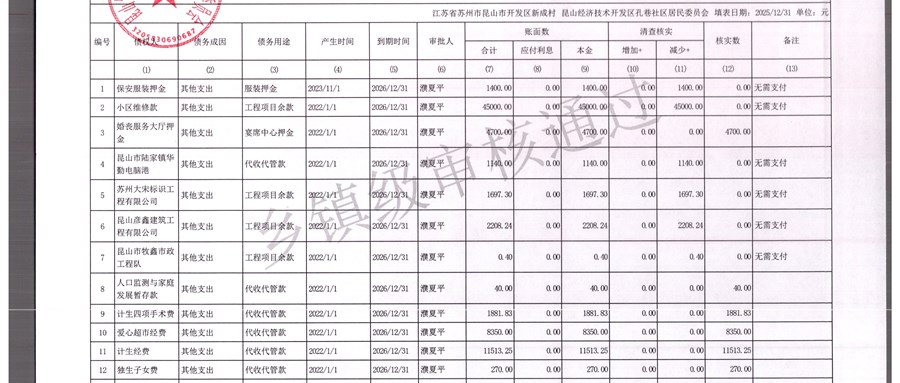 江苏省苏州市昆山市开发区新成村 昆山经济技术开发区孔巷社区居民委员会 填表日期: 2025/12/31 单位: 元
编号 债权人 债务成因 债务用途 产生时间 到期时间 审批人 账面数 清查核实 核实数 备注
合计 应付利息 本金 增加+ 减少+
(1) (2) (3) (4) (5) (6) (7) (8) (9) (10) (11) (12) (13)
1 保安服装押金 其他支出 服装押金 2023/11/1 2026/12/31 濮夏平 1400.00 0.00 1400.00 0.00 1400.00 0.00 无需支付
2 小区维修款 其他支出 工程项目余款 2022/1/1 2026/12/31 濮夏平 45000.00 0.00 45000.00 0.00 45000.00 0.00 无需支付
3 婚丧服务大厅押金 其他支出 宴席中心押金 2022/1/1 2026/12/31 濮夏平 4700.00 0.00 4700.00 0.00 0.00 4700.00
4 昆山市陆家镇华勤电脑港 其他支出 代收代管款 2022/1/1 2026/12/31 濮夏平 1140.00 0.00 1140.00 0.00 1140.00 0.00 无需支付
5 苏州大宋标识工程有限公司 其他支出 工程项目余款 2022/1/1 2026/12/31 濮夏平 1697.30 0.00 1697.30 0.00 1697.30 0.00 无需支付
6 昆山彦鑫建筑工程有限公司 其他支出 工程项目余款 2022/1/1 2026/12/31 濮夏平 2208.24 0.00 2208.24 0.00 2208.24 0.00 无需支付
7 昆山市牧鑫市政工程队 其他支出 工程项目余款 2022/1/1 2026/12/31 濮夏平 0.40 0.00 0.40 0.00 0.40 0.00 无需支付
8 人口监测与家庭发展暂存款 其他支出 代收代管款 2022/1/1 2026/12/31 濮夏平 40.00 0.00 40.00 0.00 0.00 40.00
9 计生四项手术费 其他支出 代收代管款 2022/1/1 2026/12/31 濮夏平 1881.83 0.00 1881.83 0.00 0.00 1881.83
10 爱心超市经费 其他支出 代收代管款 2022/1/1 2026/12/31 濮夏平 8350.00 0.00 8350.00 0.00 0.00 8350.00
11 计生经费 其他支出 代收代管款 2022/1/1 2026/12/31 濮夏平 11513.25 0.00 11513.25 0.00 0.00 11513.25
12 独生子女费 其他支出 代收代管款 2022/1/1 2026/12/31 濮夏平 270.00 0.00 270.00 0.00 0.00 270.00
乡镇级审核通过
3205830690687